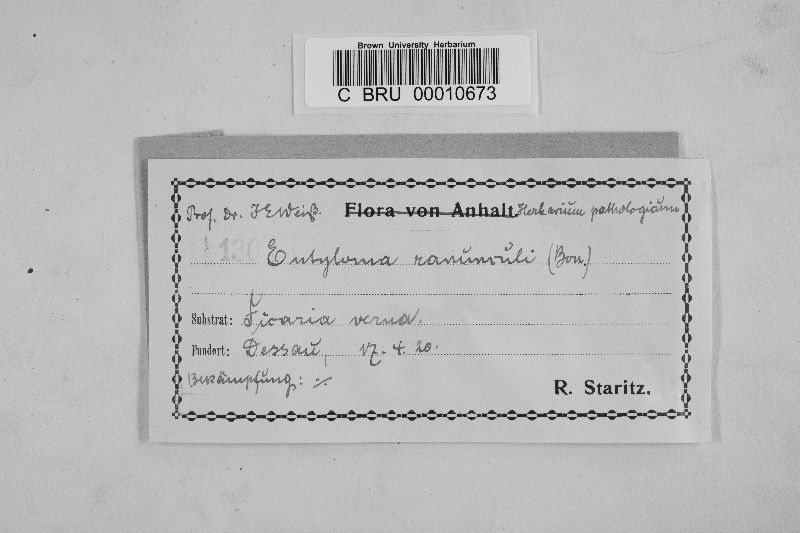 Brown University Herbarium
C BRU 00010673
Prof. Dr. J E Weiß. Flora von Anhalt. Herbarium pathologicum
130 Entyloma ranunculi (Bon.)
Substrat: Ficaria verna.
Fundort: Dessau, 17. 4. 20.
Bekämpfung: –
R. Staritz.